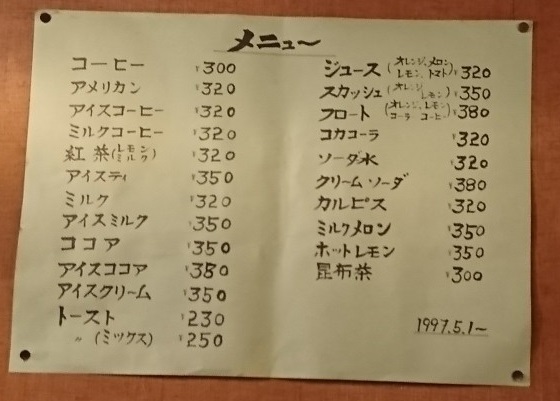 メニュ〜
コーヒー ¥300
アメリカン ¥320
アイスコーヒー ¥320
ミルクコーヒー ¥320
紅茶(レモン ミルク) ¥320
アイスティ ¥350
ミルク ¥320
アイスミルク ¥350
ココア ¥350
アイスココア ¥380
アイスクリーム ¥350
トースト ¥230
〃 (ミックス) ¥250
ジュース(オレンジ、メロン レモン、トマト) ¥320
スカッシュ(オレンジ レモン) ¥350
フロート(オレンジ、レモン コーラ コーヒー) ¥380
コカコーラ ¥320
ソーダ水 ¥320
クリームソーダ ¥380
カルピス ¥320
ミルクメロン ¥350
ホットレモン ¥350
昆布茶 ¥300
1997.5.1〜